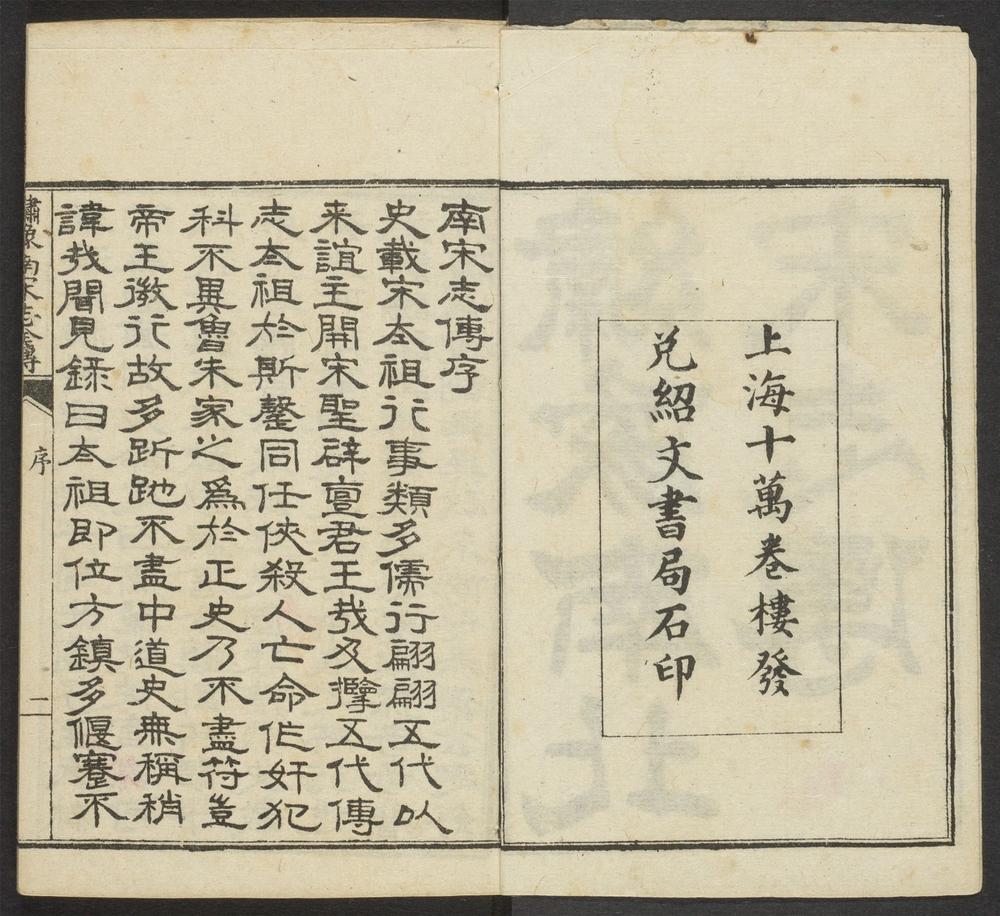 上海十萬卷樓發
兌紹文書局石印
南宋志傳序
史載宋太祖行事類多儒行翩翩五代以
来誼主開宋聖辟亶君王哉及攷五代傳
志太祖於斯蹵同任俠殺人亡命作奸犯
科不異魯朱家之爲於正史乃不盡符豈
帝王微行故多跅跎不盡中道史無稱稍
諱哉聞見錄曰太祖即位方鎮多偃蹇不
繡像南宋志全傳
序
二